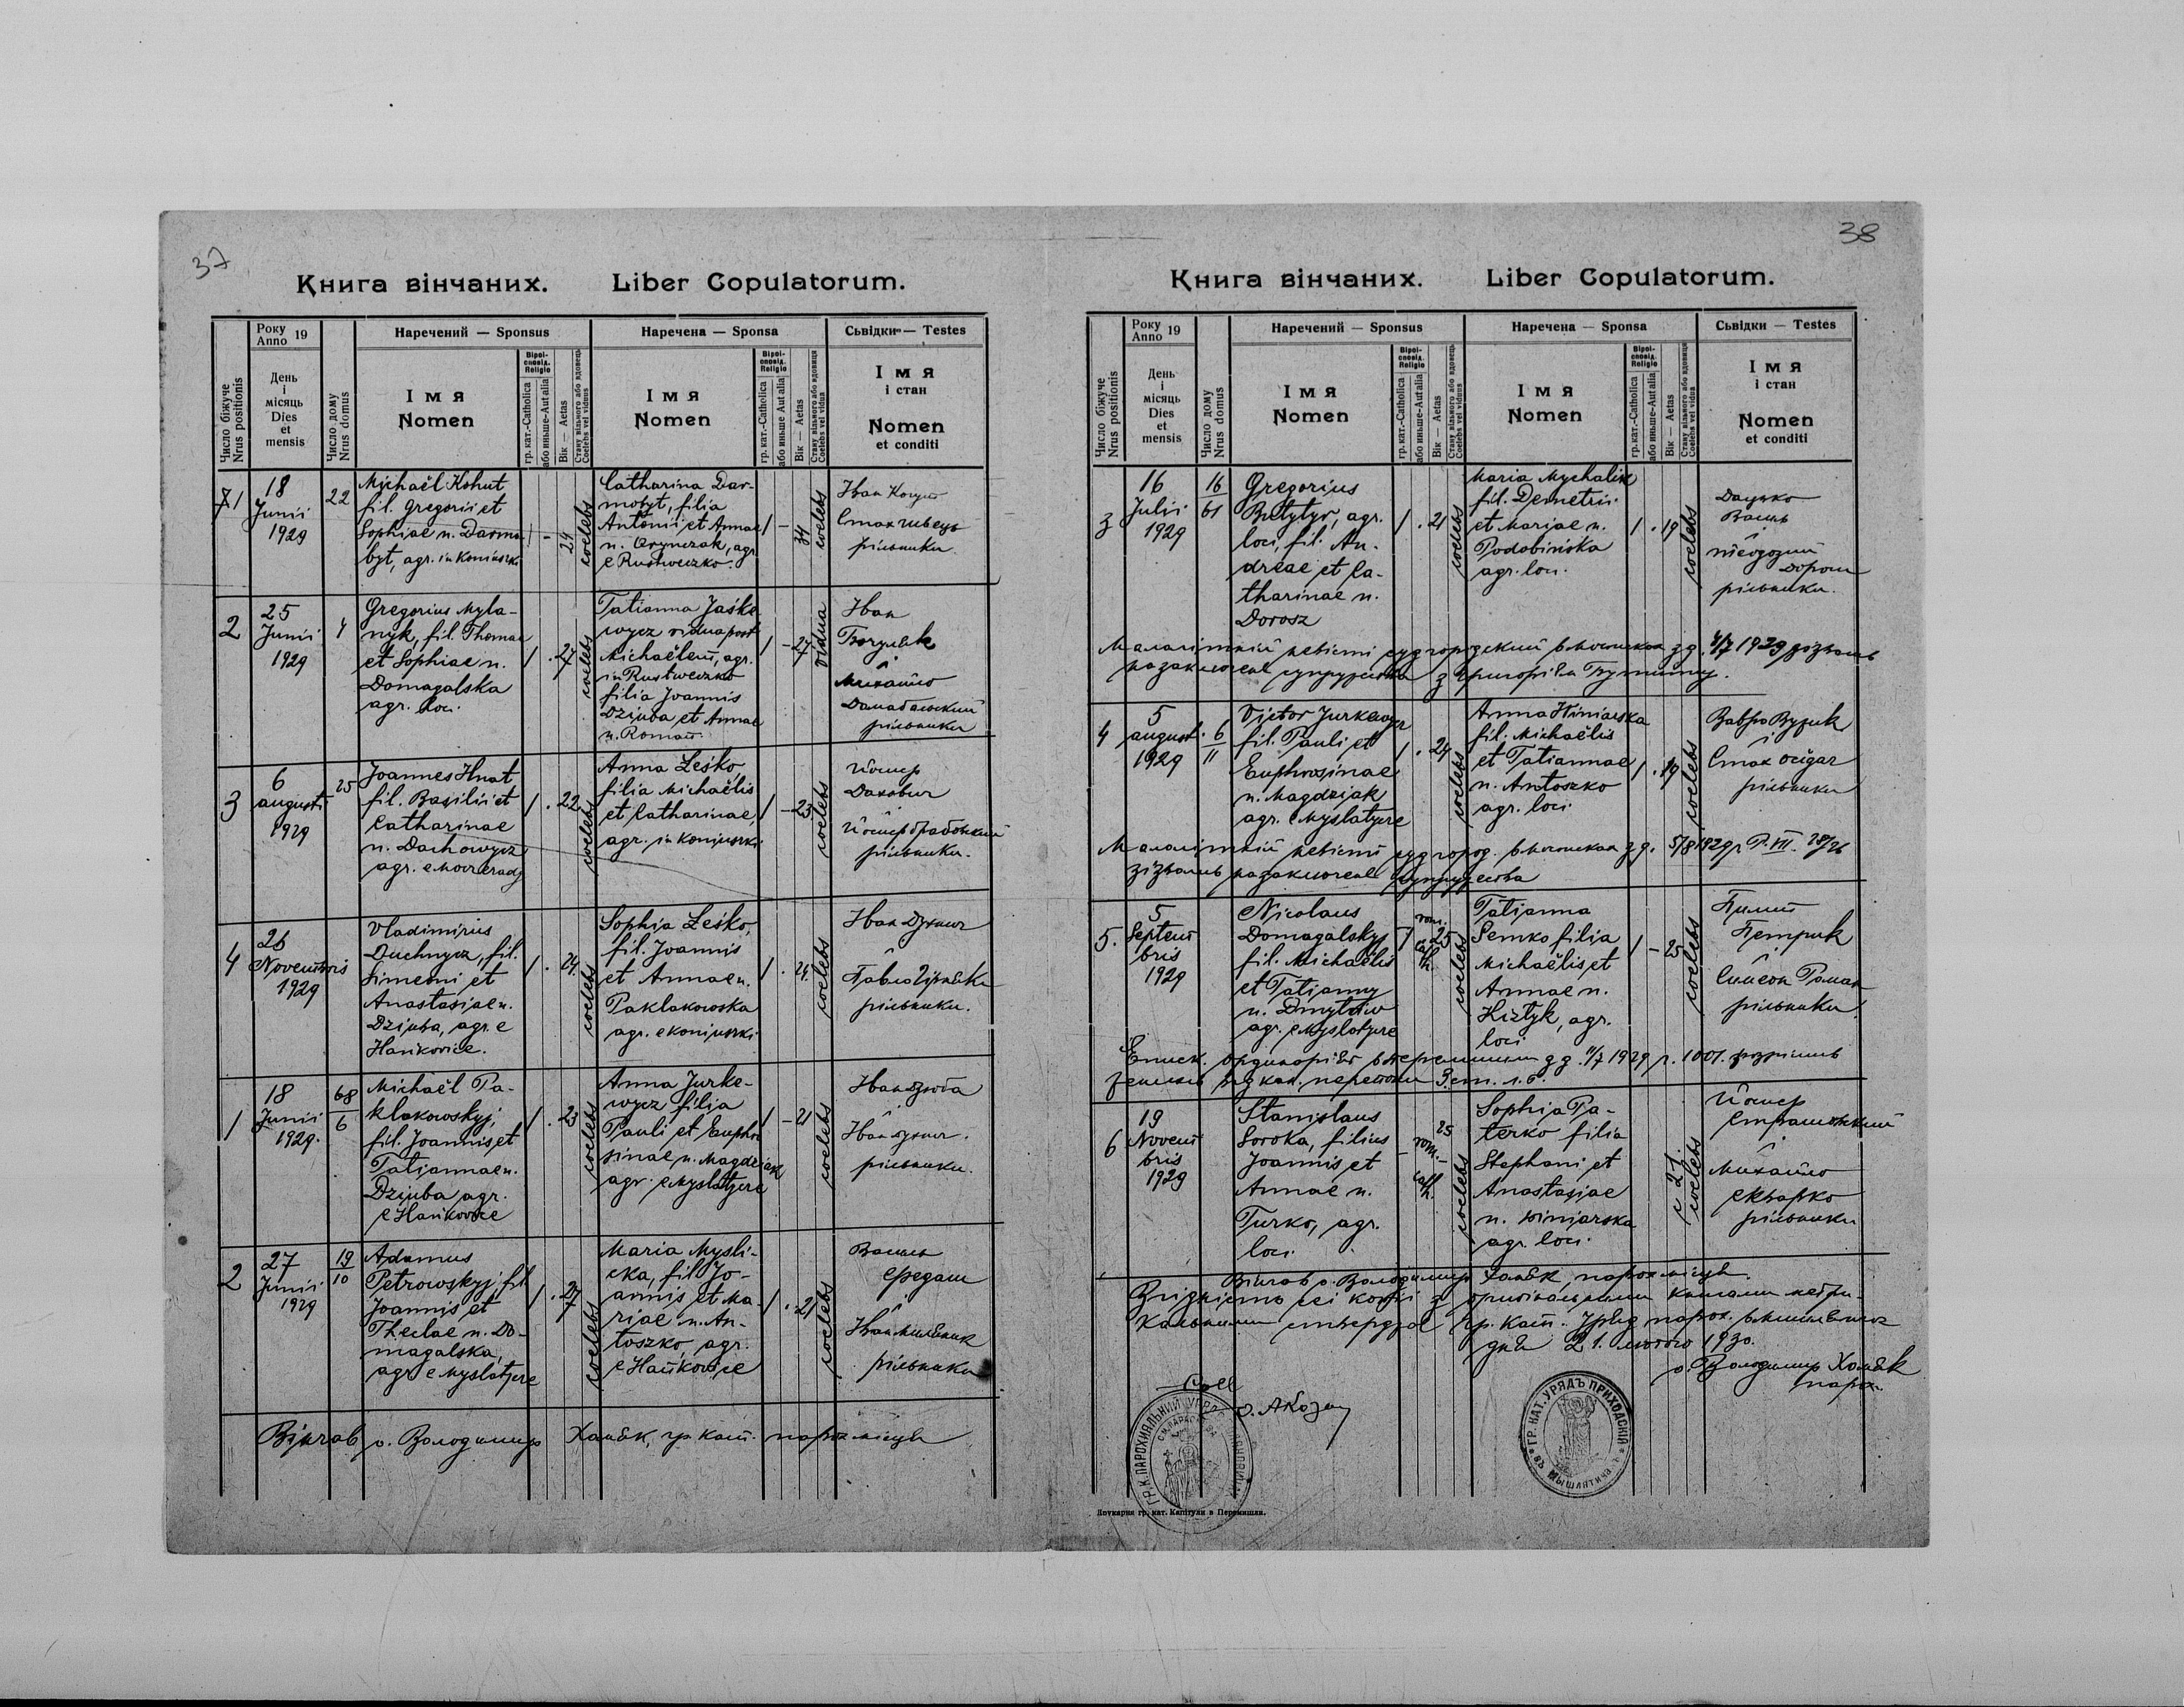 37
Книга вінчаних. Liber Copulatorum.
Число біжуче
Nrus positionis
Року
Anno 19
День
і
місяць
Dies
et
mensis
Число дому
Nrus domus
Наречений — Sponsus
Імя
Nomen
Віроі-
сповід.
Religio
гр. кат.-Catholica
або иньше-Aut alia
Вік — Aetas
Стану вільного або вдовець
Coelebs vel viduus
Наречена — Sponsa
Імя
Nomen
Віроі-
сповід.
Religio
гр. кат.-Catholica
або иньше Aut alia
Вік — Aetas
Стану вільного або вдовиця
Coelebs vel vidua
Сьвідки — Testes
Імя
і стан
Nomen
et conditi
1
18
Junii
1929
22
Michaël Kohut
fil. Gregorii et
Sophiae n. Darmo-
byt, agr. in Koniuszki
24
coelebs
Catharina Dar-
mobyt, filia
Antonii et Annae
n. Hrynczak, agr.
e Rustweczko.
34
coelebs
Іван Когут
Стах швець
рільники.
2
25
Junii
1929
4
Gregorius Myla-
nyk, fil. Thomae
et Sophiae n.
Domagalska
agr. loci.
27
coelebs
Tatianna Jaśke
wycz vidua post
Michaëlem, agr.
in Rustweczko
filia Joannis
Dziuba et Annae
n. Roman.
27
vidua
Іван
і
Михайло
Домагальский
рільники
3
6
augusti
1929
25
Joannes Hnat
fil. Basilii et
Catharinae
n. Dachowycz
agr. e Moczerady
22
coelebs
Anna Leśko,
filia Michaëlis
et Catharinae,
agr. in Koniuszki
23
coelebs
Йосиф
Дахович
рільники.
4
26
Novembris
1929
Vladimirus
Duchnycz, fil.
Simeoni et
Anastasiae n.
Dziuba, agr. e
Hańkowice.
24.
coelebs
Sophia Leśko,
fil. Joannis
et Annae n.
Paklakowska
agr. e Koniuszki.
24.
coelebs
Іван Духнич
рільники.
1
18
Junii
1929.
68
6
Michaël Pa-
klakowskyj,
fil. Joannis et
Tatiannae n.
Dziuba agr.
e Hańkowice
23
coelebs
Anna Jurke-
wycz filia
Pauli et Euphro
sinae, n. Magdziak
agr. e Myslatycze
21
coelebs
Іван Дзюба
Іван Духнич.
рільники.
2
27
Junii
1929
19
10
Adamus
Petrowskyj fil.
Joannis et
Theclae n. Do-
magalska,
agr. e Myslatycze
27
coelebs
Maria Mysli-
cka, fil. Jo-
annis et Ma-
riae n. An-
toszko, agr.
e Hańkowice
21
coelebs
Василь
Середаш
і
рільники
Вінчав о. Володимир Хомяк, гр. кат. парох місця
38
Книга вінчаних. Liber Copulatorum.
Число біжуче
Nrus positionis
Року
Anno 19
День
і
місяць
Dies
et
mensis
Число дому
Nrus domus
Наречений — Sponsus
Імя
Nomen
Віроі-
сповід.
Religio
гр. кат.-Catholica
або иньше-Aut alia
Вік — Aetas
Стану вільного або вдовець
Coelebs vel viduus
Наречена — Sponsa
Імя
Nomen
Віроі-
сповід.
Religio
гр. кат.-Catholica
або иньше-Aut alia
Вік — Aetas
Стану вільного або вдовиця
Coelebs vel vidua
Сьвідки — Testes
Імя
і стан
Nomen
et conditi
3
16
Julii
1929
16
61
Gregorius
Butytyr, agr.
loci, fil. An-
dreae et Ca-
tharinae n.
Dorosz
21
coelebs
Maria Mychalik
fil. Demetrii
et Mariae n.
Podobińska
agr. loci.
19
coelebs
Дацько
Василь
і
Теодозий
Дорош
рільники.
4
5
august.
1929
6
11
Victor Jurkewycz
fil. Pauli et
Euphrosinae
n. Magdziak
agr. e Myslatycze
24
coelebs
Anna Winiarska
fil. Michaëlis
et Tatiannae
n. Antoszko
agr. loci.
19
coelebs
і
рільники
5.
5
Septem
bris
1929
Nicolaus
Domagalskyj
fil. Michaëlis
et Tatianny
n. Dmytriw
agr. e Myslatycze
rom.
cath.
25
coelebs
Tatianna
Semko filia
Michaëlis et
Annae n.
Hiztyk, agr.
loci
25
coelebs
Петрик
Симеон Роман
рільники.
6
19
Novem
bris
1929
Stanislaus
Soroka, filius
Joannis et
Annae n.
Turko, agr.
loci.
25
rom.
cath.
coelebs
Sophia Pa-
terko filia
Stephani et
Anastasiae
n. Winiarska
agr. loci.
21.
coelebs
Йосиф
і
Михайло
Скварко
рільники
Вінчав о. Володимир Хомяк, парох місця.
Згідність сеї копії з оригінальними книгами метри-
кальними стверджає Гр. кат. Уряд парох. в Мишлятичах
дня 21. лютого 1930.
о. Володимир Хомяк
парох
Coll
ГР. КАТ. УРЯДЪ ПРИХОДСКІЙ
въ Мышлятичахъ
Друкарня гр. кат. Капітули в Перемишли.